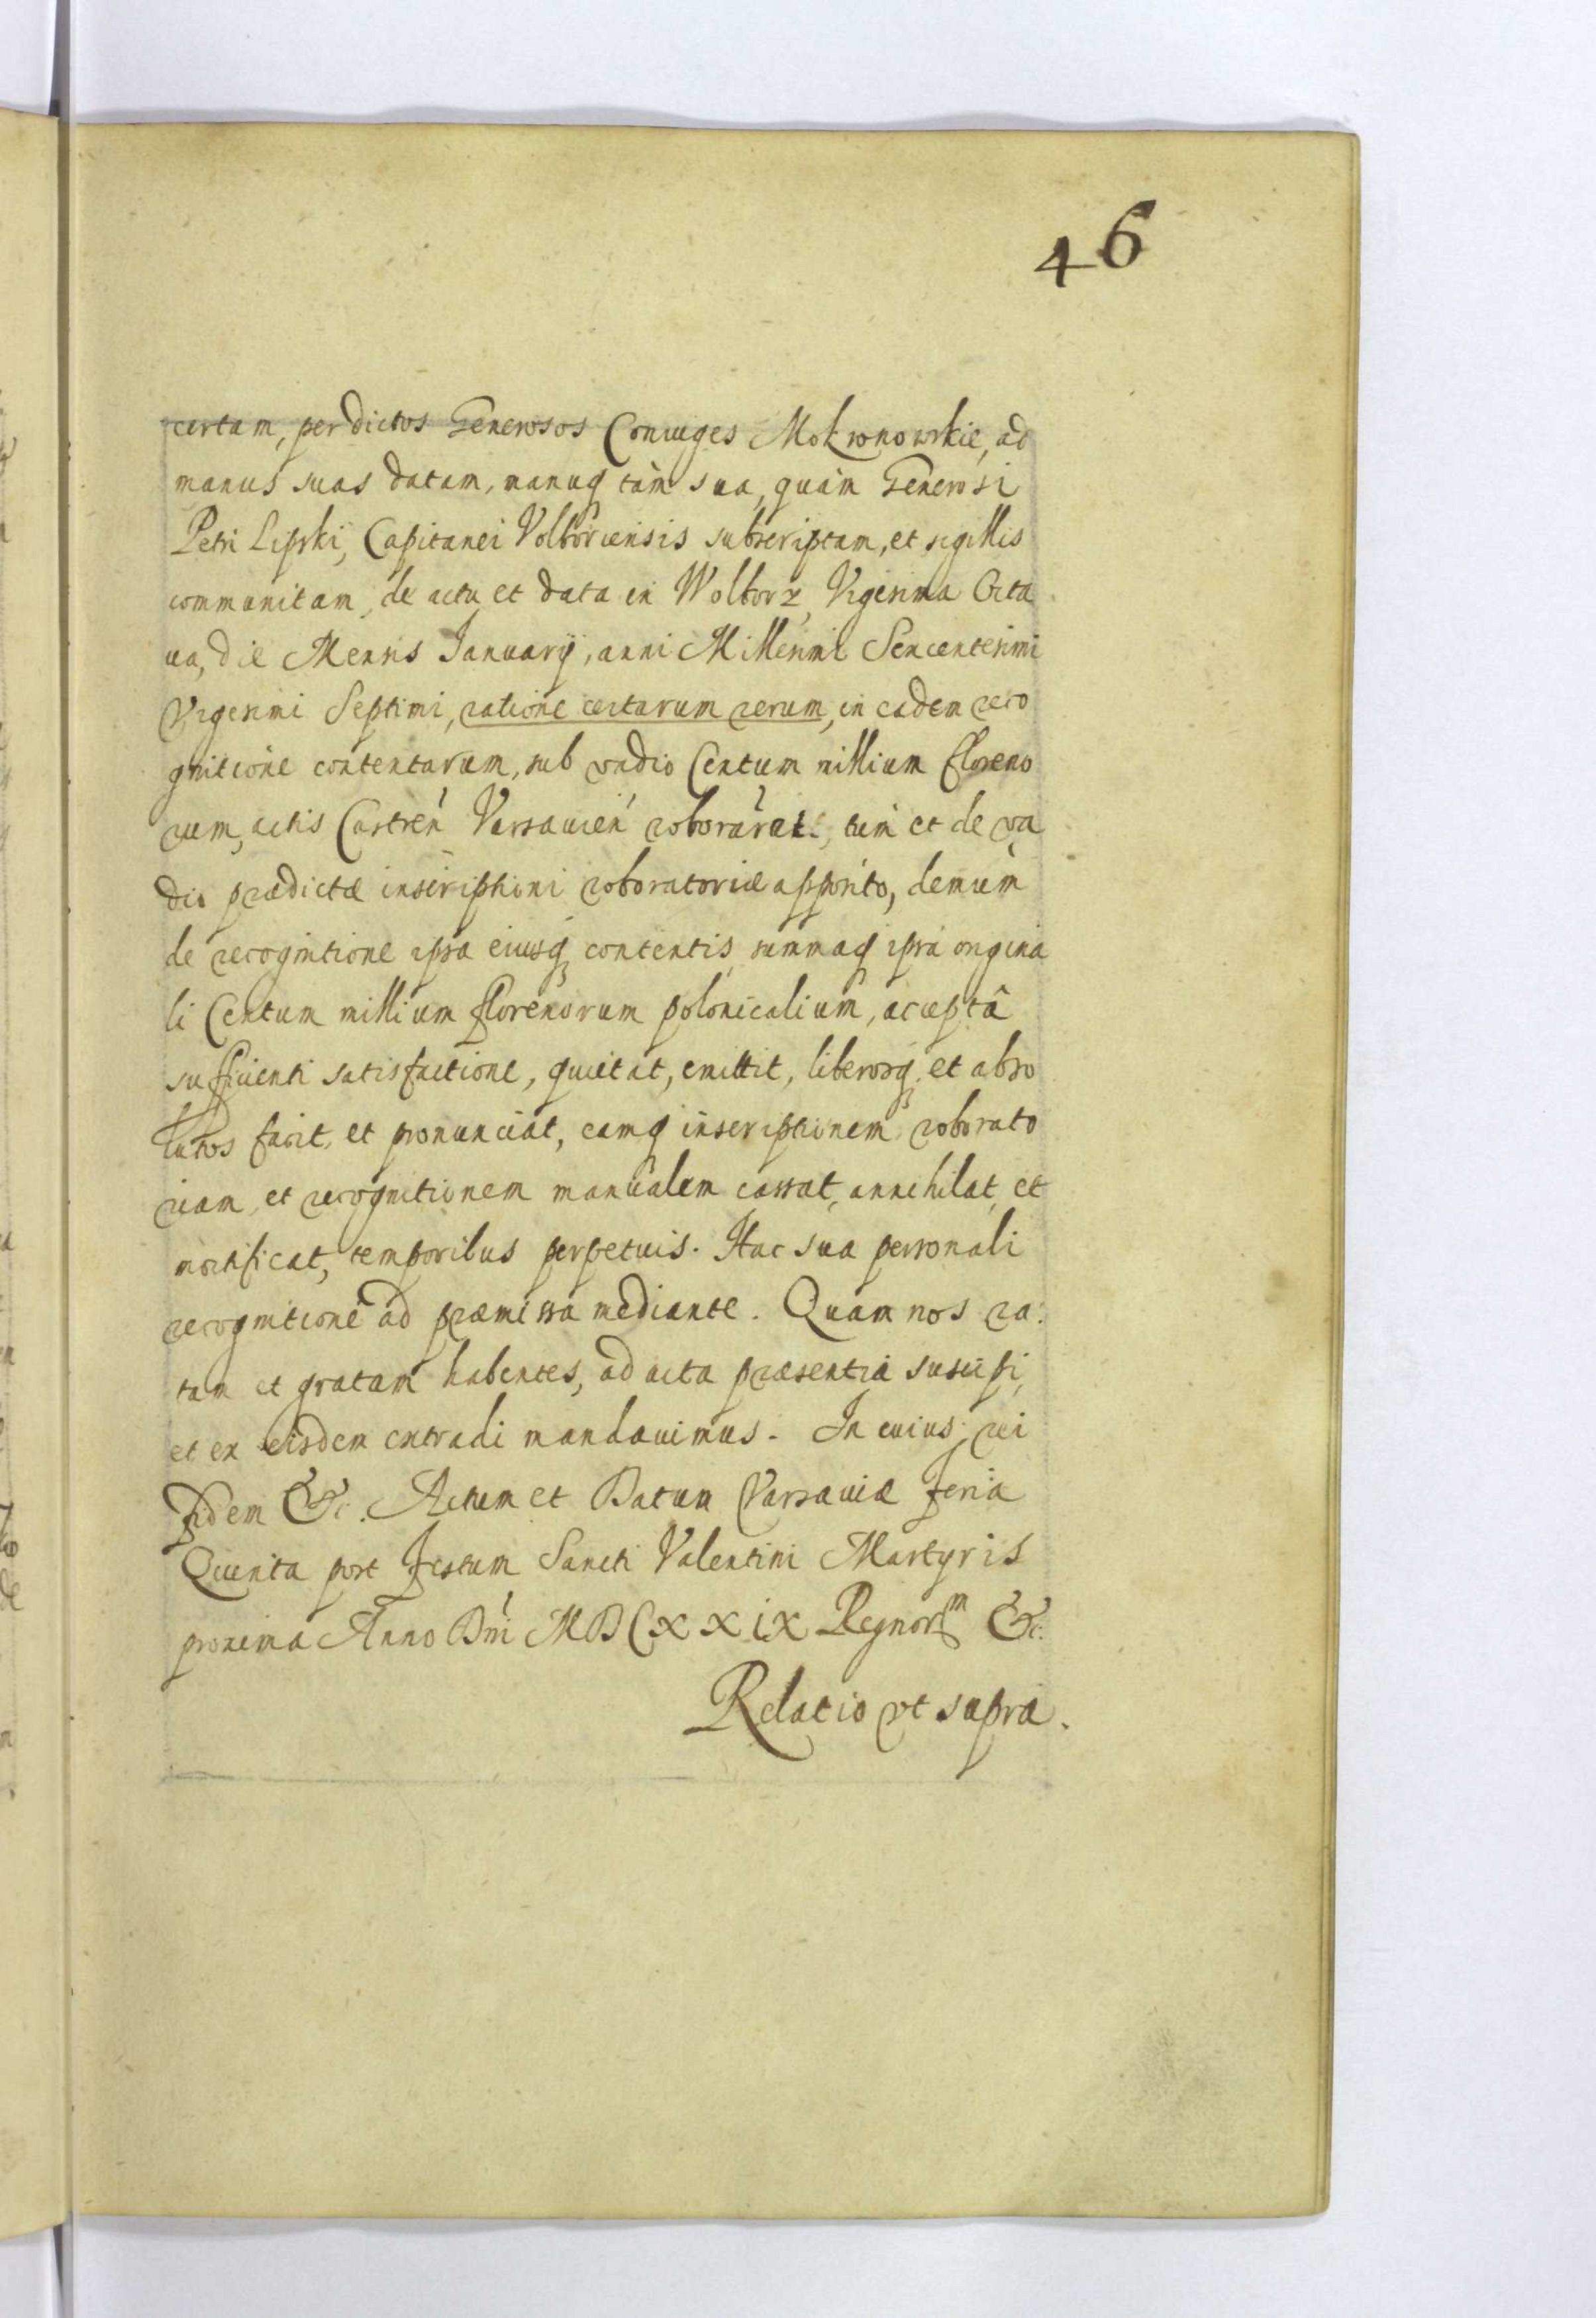 46
certam, per dictos Generosos Coniuges Mokronowskie, ad
manus suas datam, manuq tàm sua, quàm Generosi
Petri Lipski, Capitanei Volboriensis subscriptam, et sigillis
communitam, de actu et data in Wolborz, Vigesima Octa
ua, die Mensis Januarij, anni Millesimi Sexcentesimi
Vigesimi Septimi, ratione certarum rerum, in eadem reco
gnitione contentarum, sub vadio Centum millium floreno
rum, actis Castren Varsauien roborarat, tùm et de va
dio prædictæ inscriptioni roboratoriæ apposito, demùm
de recognitione ipsa eiusq contentis, summaq ipsa origina
li Centum millium florenorum polonicalium, acceptâ
sufficienti satisfactione, quietat, emittit, liberosq et abso
lutos facit, et pronunciat, eamq inscriptionem roborato
riam, et recognitionem manualem cassat, annihilat, et
mortificat, temporibus perpetuis. Hac sua personali
recognitione ad præmissa mediante. Quam nos ra:
tam et gratam habentes, ad acta præsentia suscipi,
et ex eisdem extradi mandauimus. In cuius rei
fidem &c. Actum et Datum Varsauiæ Feria
Quinta post Festum Sancti Valentini Martyris
proxima Anno Dni MDCXXIX Regnorm &c.
Relatio vt supra.